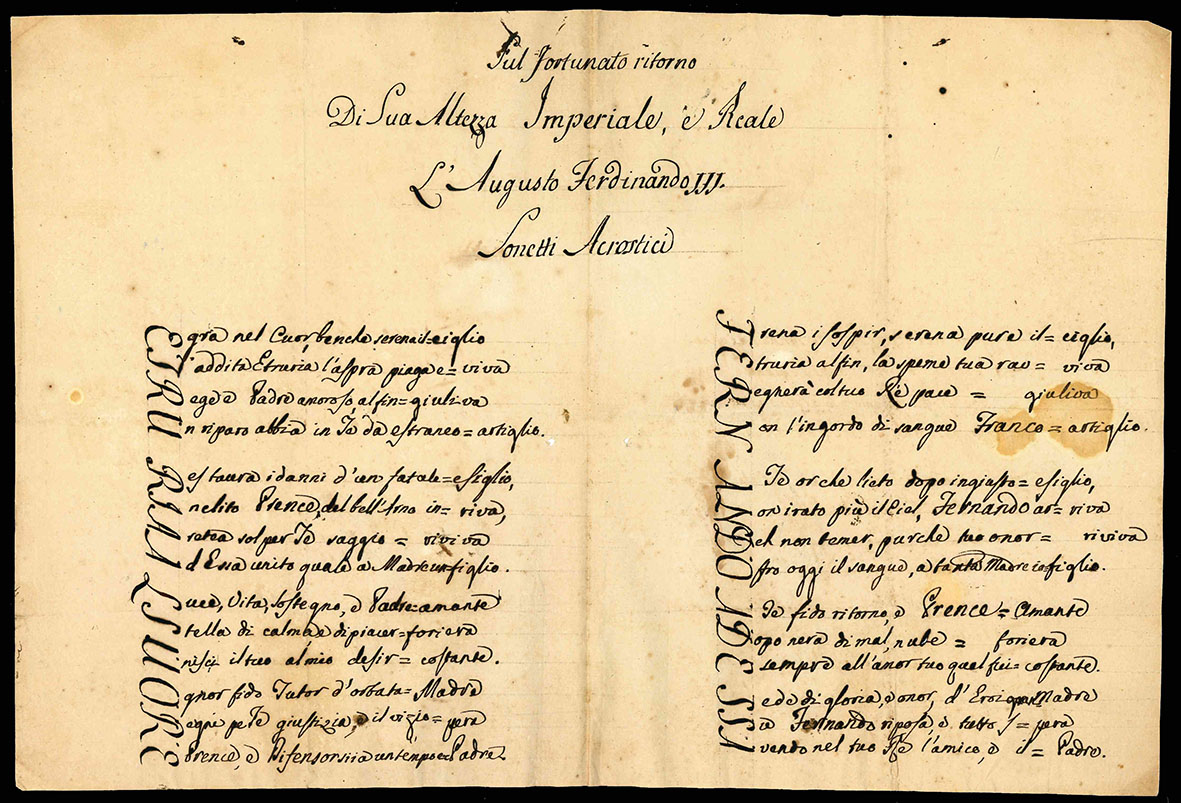 Sul fortunato ritorno
Di Sua Altezza Imperiale, e Reale
L'Augusto Ferdinando III.
Sonetti Acrostici
Egra nel Cuor, benche serena il= ciglio
T'addita Etruria l'aspra piaga e= viva
Rege e Padre amoroso al fin= giuliva
Un riparo abbia in Te da estraneo= artiglio.
Restaura i danni d'un fatale= esiglio,
Inclito Prence, del bell'Arno in= riva,
sol per Te saggio = viviva
Ad Essa unito quale a Madre un figlio.
Luce, Vita, Sostegno, e Padre= amante
Stella di calma e di piacer= foriera
Unisci il tuo al mio desir= costante.
Ognor fido Tutor d'orbata= Madre
Regni pe Te giustizia, e il vizio= pera
E Prence, e Difensor sii a un tempo e= Padre.
Frena i sospir, serena pura il= ciglio,
Etruria al fin, la speme tua rav= viva
Regnerà col tuo Rè pace = giuliva
Non l'ingordo di sangue Franco= artiglio.
A Te or che lieto dopo ingiusto= esiglio,
Non irato più il Ciel, Fernando ar= riva
Deh non temer, purche tuo onor= riviva
Offro oggi il sangue, a tanta Madre io figlio.
A Te fido ritorno, e Prence= Amante
Dopo nera di mal, nube = foriera
E sempre all'amor tuo qual fui= costante.
Sede di gloria, e onor, d'Eroi Madre
Fernando riposa, e tutto s= pera
Avendo nel tuo Rè l'amico, e il= Padre.